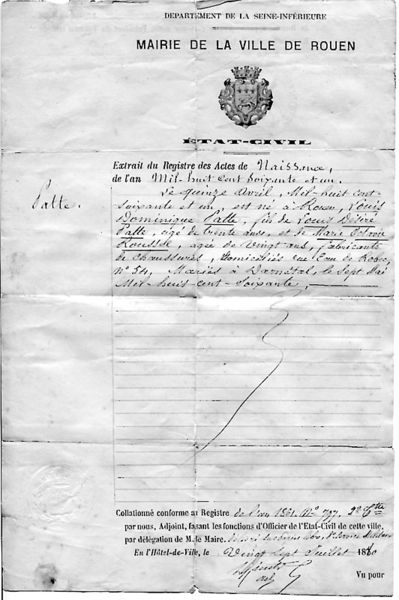 DÉPARTEMENT DE LA SEINE-INFÉRIEURE
MAIRIE DE LA VILLE DE ROUEN
ÉTAT-CIVIL
Extrait du Registre des Actes de Naissance,
de l'an Mil-huit cent soixante et un.
Patte.
Le quinze avril, Mil-huit cent-
soixante et un, est né à Rouen, Louis
Dominique Patte, fils de Louis Désiré
Patte, âgé de trente ans, et de Marie Octavie
Rousselle, âgée de vingt ans, fabricants
de chaussures, domiciliés rue Eau de Robec
N° 54, Mariés à Darnétal, le Sept Mai
Mil-huit-cent-soixante,
Collationné conforme au Registre de l'an 1861. N° 797, 2e
par nous, Adjoint, faisant les fonctions d'Officier de l'Etat-Civil de cette ville,
par délégation de M. le Maire.
En l'Hôtel-de-Ville, le Vingt Sept Juillet 1880
Vu pour